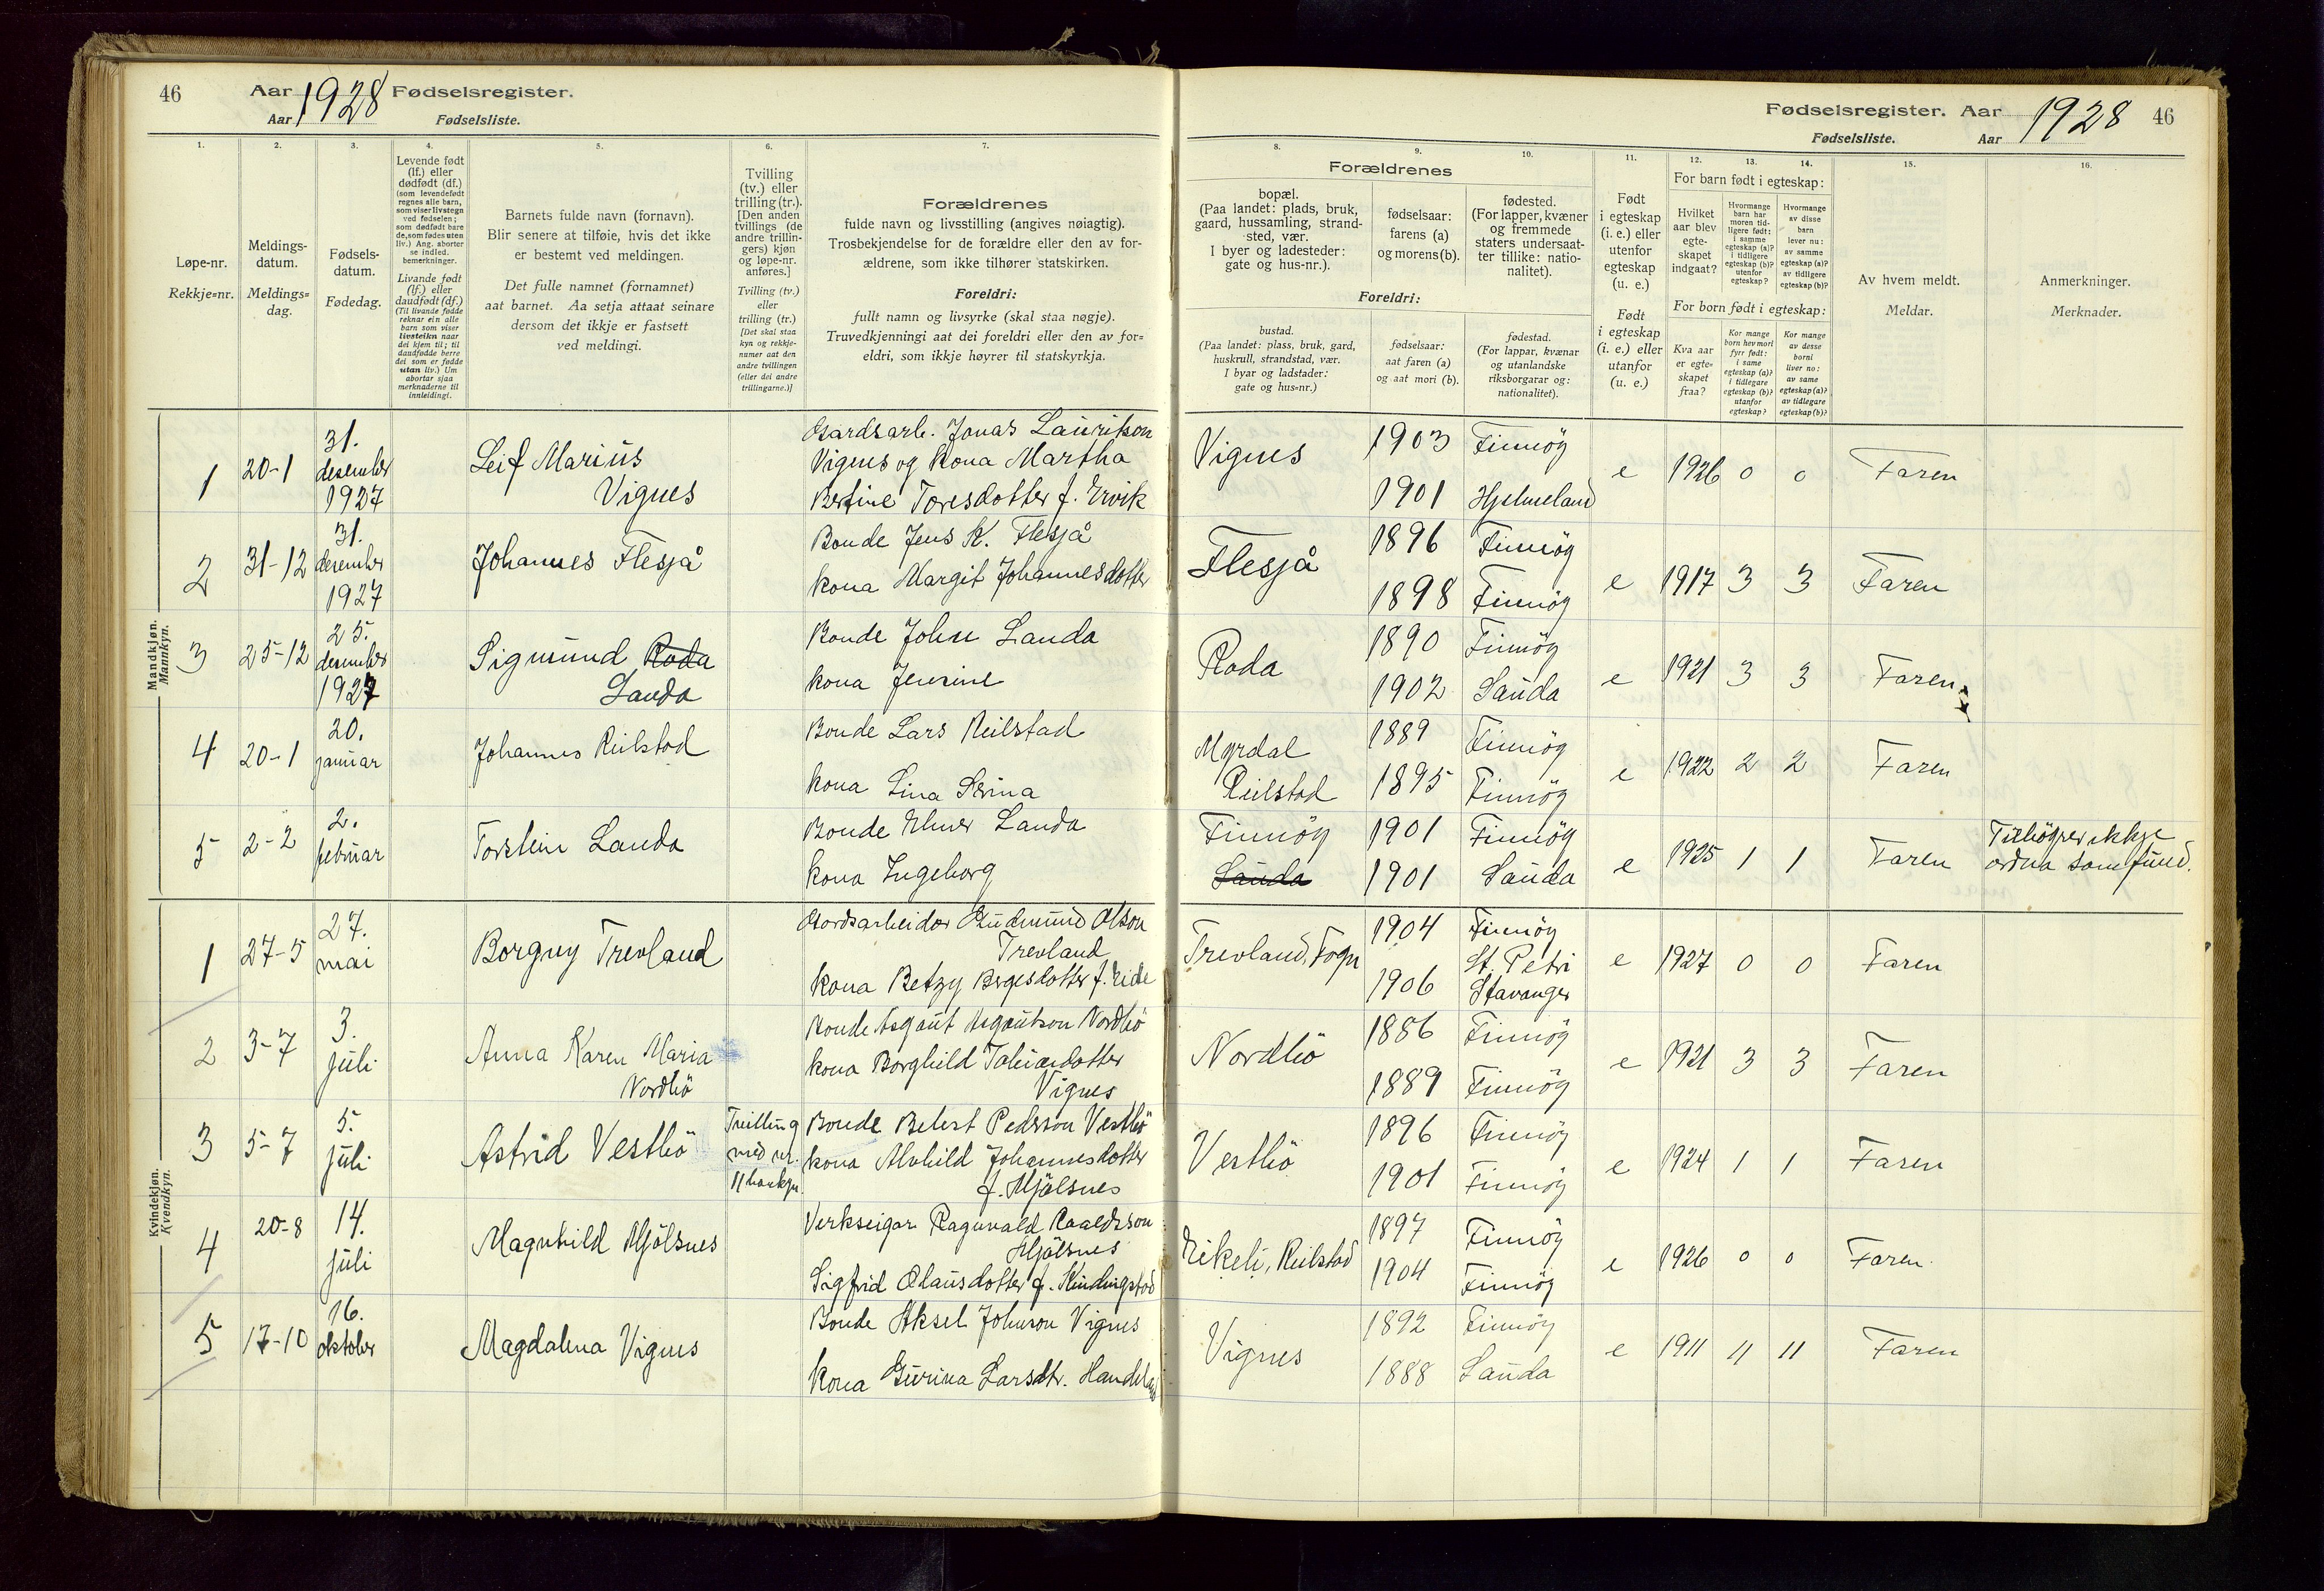 46
Aar 1928 Fødselsregister.
Aar Fødselsliste.
1.
2.
3.
4.
5.
6.
7.
Løpe-nr.
Rekkje=nr.
Meldings-
datum.
Meldings=
dag.
Fødsels-
datum.
Fødedag.
Levende født
(lf.) eller
dødfødt (df.)
(som levendefødt
regnes alle barn,
som viser livstegn
ved fødselen;
som dødfødt bare
de, som fødes uten
liv.) Ang. aborter
se indled.
bemerkninger.
Livande født
(lf.) eller
daudfødt (df.)
(Til livande fødde
reknar ein alle
barn som viser
livsteikn naar
dei kjem til; til
daudfødde berre
dei som er fødde
utan liv.) Um
abortar sjaa
merknaderne til
innleidingi.
Barnets fulde navn (fornavn).
Blir senere at tilføie, hvis det ikke
er bestemt ved meldingen.
Det fulle namnet (fornamnet)
aat barnet. Aa setja attaat seinare
dersom det ikkje er fastsett
ved meldingi.
Tvilling
(tv.) eller
trilling (tr.).
[Den anden
tvillings (de
andre trillin-
gers) kjøn
og løpe-nr.
anføres.]
Tvilling (tv.)
eller
trilling (tr.)
[Det skal staa
kyn og rekkje-
numer aat den
andre tvillingen
(eller dei andre
trillingarne.)]
Forældrenes
fulde navn og livsstilling (angives nøiagtig).
Trosbekjendelse for de forældre eller den av for-
ældrene, som ikke tilhører statskirken.
Foreldri:
fullt namn og livsyrke (skal staa nøgje).
Truvedkjenningi aat dei foreldri eller den av for=
eldri, som ikkje høyrer til statskyrkja.
Mandkjøn.
Mannkyn.
1 20-1 31. desember 1927 Leif Marius Vignes
Gardsarb. Jonas Lauritson
Vignes og kona Martha
Bertine Toresdotter f. Ervik
2 31-12 31. desember 1927 Johannes Flesjå
Bonde Jens K. Flesjå
kona Margit Johannesdotter
3 25-12 25. desember 1927 Sigmund Roda Landa
Bonde John Landa
kona Jenrine
4 20-1 20. januar Johannes Reilstad
Bonde Lars Reilstad
kona Lina Serina
5 2-2 2. februar Torstein Landa
Bonde Elmer Landa
kona Ingeborg
Kvindekjøn.
Kvendkyn.
1 27-5 27. mai Borgny Trevland
Gardsarbeidar Gudmund Olson
Trevland
kona Betzy Bergesdotter f. Eide
2 3-7 3. juli Anna Karen Maria Nordbö
Bonde Asgaut Asgautson Nordbö
kona Borghild Tobiasdotter
Vignes
3 5-7 5. juli Astrid Vestbö
Tvilling
med nr.
11 hankyn.
Bonde Betest Pederson Vestbö
kona Alvhild Johannesdotter
f. Mjölsnes
4 20-8 14. juli Magnhild Mjölsnes
Verkseigar Ragnvald Raaldsson
Mjölsnes
Sigfrid Olausdotter f. Kindingstad
5 17-10 16. oktober Magdalena Vignes
Bonde Aksel Johnson Vignes
kona Gurina Larsdtr. Handeland
Fødselsregister. Aar 1928 46
Fødselsliste. Aar
8.
9.
10.
11.
12.
13.
14.
15.
16.
Forældrenes
bopæl.
(Paa landet: plads, bruk,
gaard, hussamling, strand-
sted, vær.
I byer og ladesteder:
gate og hus-nr.).
fødselsaar:
farens (a)
og morens (b).
fødested.
(For lapper, kvæner
og fremmede
staters undersaat-
ter tillike: natio-
nalitet).
Foreldri:
bustad.
(Paa landet: plass, bruk, gard,
huskrull, strandstad, vær.
I byar og ladstader:
gate og hus=nr.)
fødselsaar:
aat faren (a)
og aat mori (b).
fødestad.
(For lappar, kvænar
og utanlandske
riksborgarar og:
nationalitet).
Født
i egteskap
(i. e.) eller
utenfor
egteskap
(u. e.)
Født
i egteskap
(i. e.) eller
utanfor
(u. e.)
For barn født i egteskap:
Hvilket
aar blev
egte-
skapet
indgaat?
Hvormange
barn har
moren tid-
ligere født:
i samme
egteskap (a)?
i tidligere
egteskap (b)?
utenfor
egteskap?
Hvormange
av disse
barn
lever nu:
av samme
egteskap (a)?
av tidligere
egteskap (b)?
For born født i egteskap:
Kva aar
er egte=
skapet
fraa?
Kor mange
born hev mori
fyrr født:
i same
egteskap (a)?
i tidlegare
egteskap (b)?
utanfor
egteskap?
Kor mange
av desse
borni
liver no:
av same
egteskap (a)?
av tidlegare
egteskap (b)?
Av hvem meldt.
Meldar.
Anmerkninger.
Merknader.
Vignes 1903 Finnöy 1901 Hjelmeland e 1926 0 0 Faren
Flesjå 1896 Finnöy 1898 Finnöy e 1917 3 3 Faren
Roda 1890 Finnöy 1902 Sauda e 1921 3 3 Faren
Myrdal Reilstad 1889 Finnöy 1895 Finnöy e 1922 2 2 Faren
Finnöy Sauda 1901 Finnöy 1901 Sauda e 1925 1 1 Faren
Tilhöyrer ikkje
ordna samfund.
Trevland, Fogn 1904 Finnöy 1906 St. Petri Stavanger e 1927 0 0 Faren
Nordbö 1886 Finnöy 1889 Finnöy e 1921 3 3 Faren
Vestbö 1896 Finnöy 1901 Finnöy e 1924 1 1 Faren
Eikeli, Reilstad 1897 Finnöy 1904 Finnöy e 1926 0 0 Faren
Vignes 1892 Finnöy 1888 Sauda e 1911 11 11 Faren